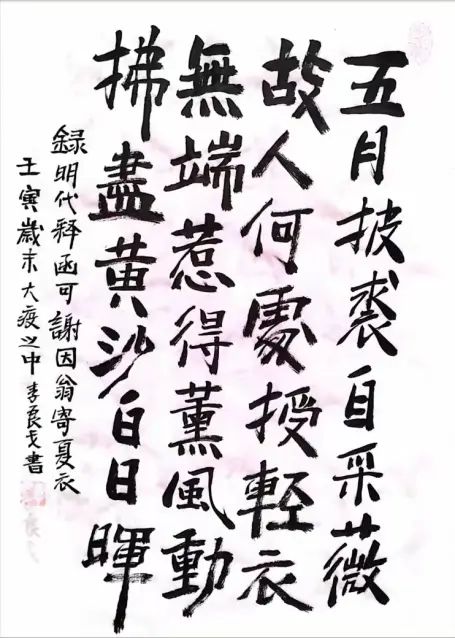 五月披裘自采薇
故人何處授輕衣
無端惹得薰風動
拂盡黃沙白日暉
録明代釋函可謝因翁寄夏衣
壬寅歲末大疫之中李良戈書